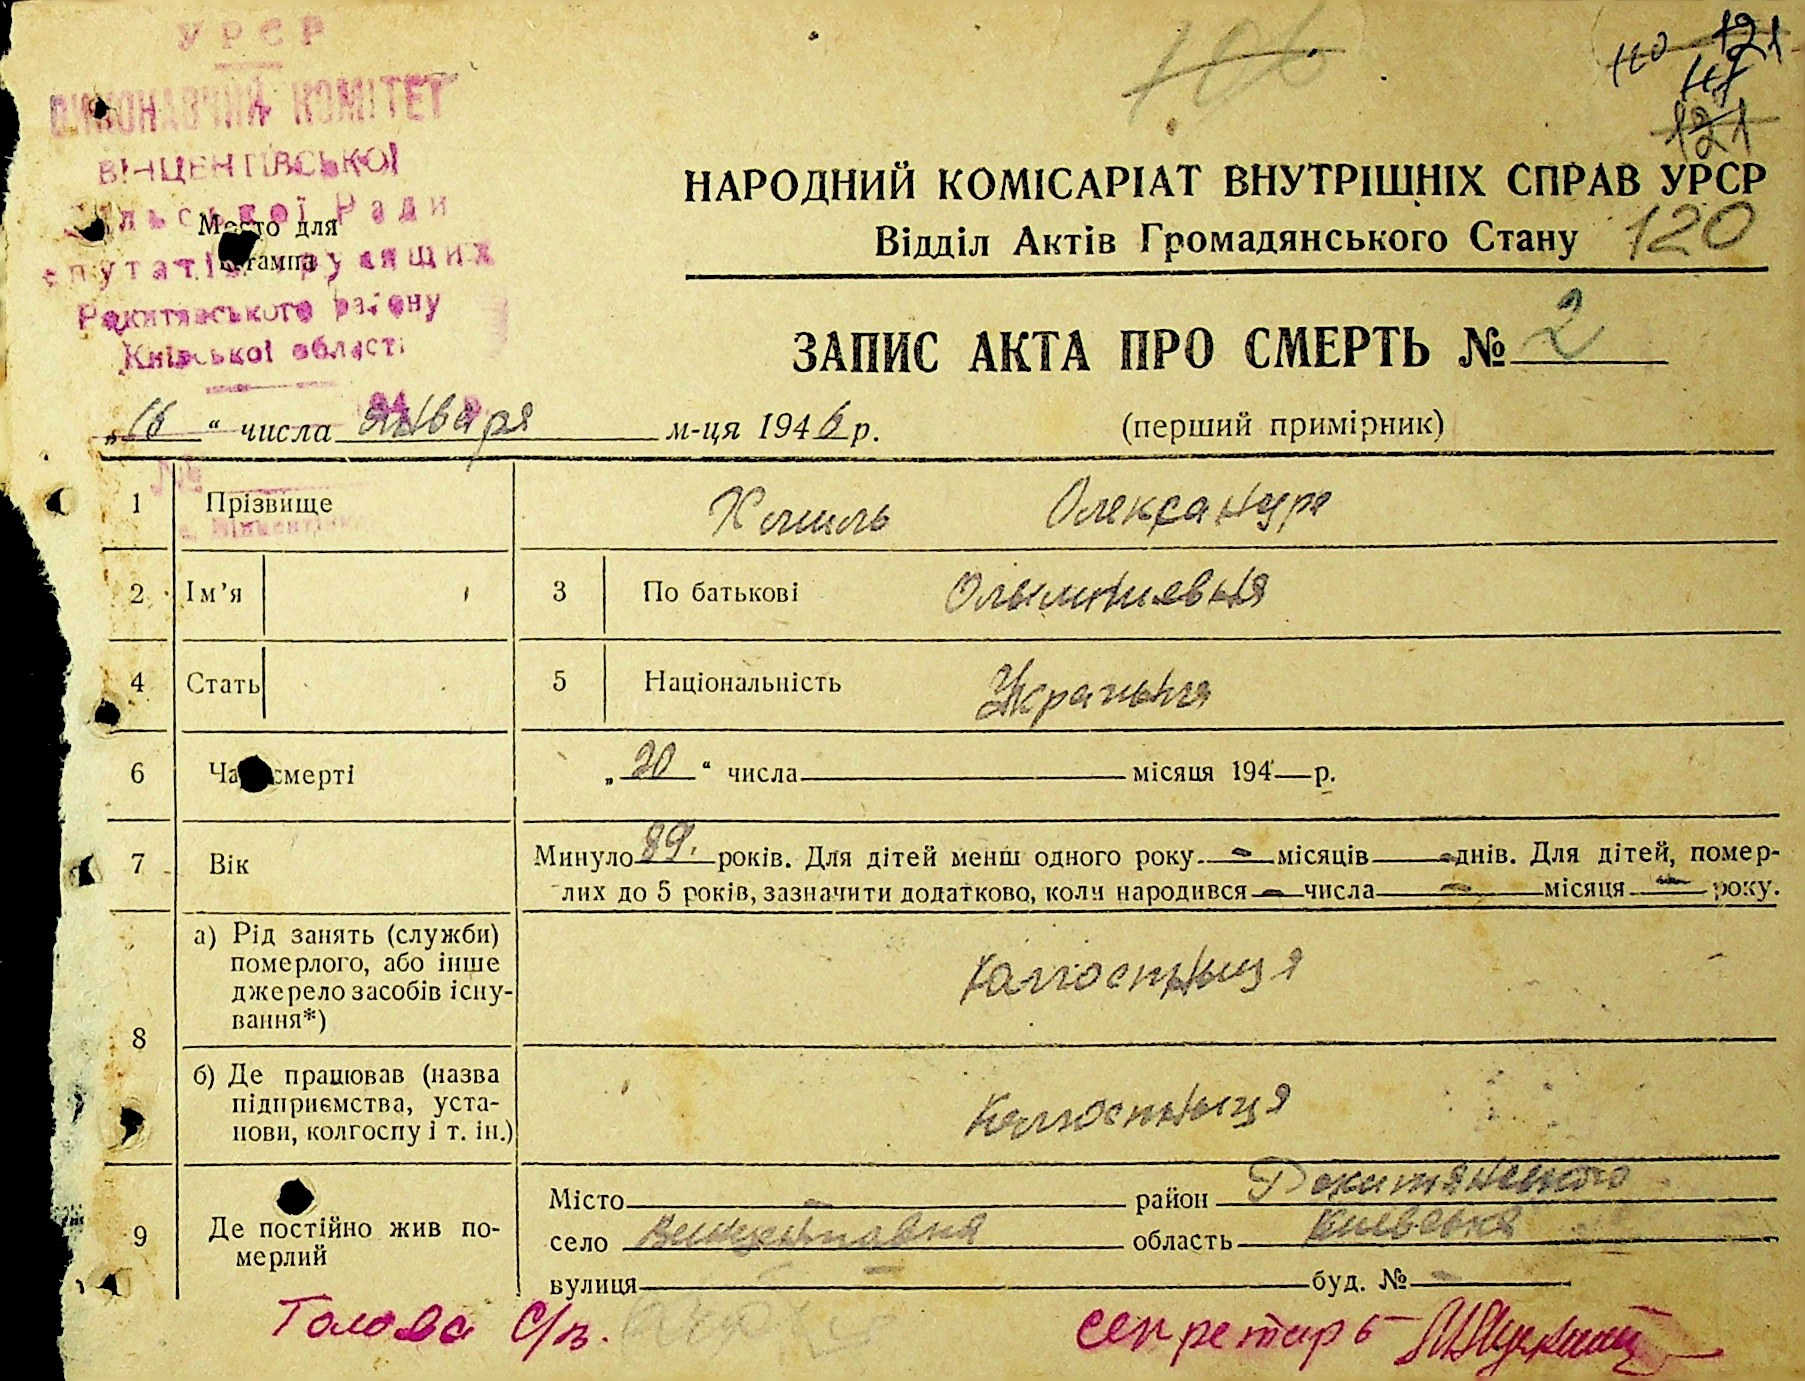 УРСР
ВИКОНАВЧИЙ КОМІТЕТ
ВІНЦЕНТІВСЬКОЇ
Сільської Ради
депутатів трудящих
Рокитянського району
Київської області
Место для
штампа
110 121
121
120
НАРОДНИЙ КОМІСАРІАТ ВНУТРІШНІХ СПРАВ УРСР
Відділ Актів Громадянського Стану
ЗАПИС АКТА ПРО СМЕРТЬ № 2
„16“ числа января м-ця 1946 р. (перший примірник)
1 Прізвище Олександра
2 Ім’я 3 По батькові
4 Стать 5 Національність Украинка
6 Час смерті „20“ числа — місяця 194— р.
7 Вік Минуло 89. років. Для дітей менш одного року — місяців — днів. Для дітей, помер-
лих до 5 років, зазначити додатково, коли народився — числа — місяця — року.
8 а) Рід занять (служби)
померлого, або інше
джерело засобів існу-
вання*)
колгоспныця
б) Де працював (назва
підприємства, уста-
нови, колгоспу і т. ін.)
колгоспныця
9 Де постійно жив по-
мерлий
Місто — район Рокитянського
село область Киевська
вулиця — буд. № —
Голова с/р. секретарь